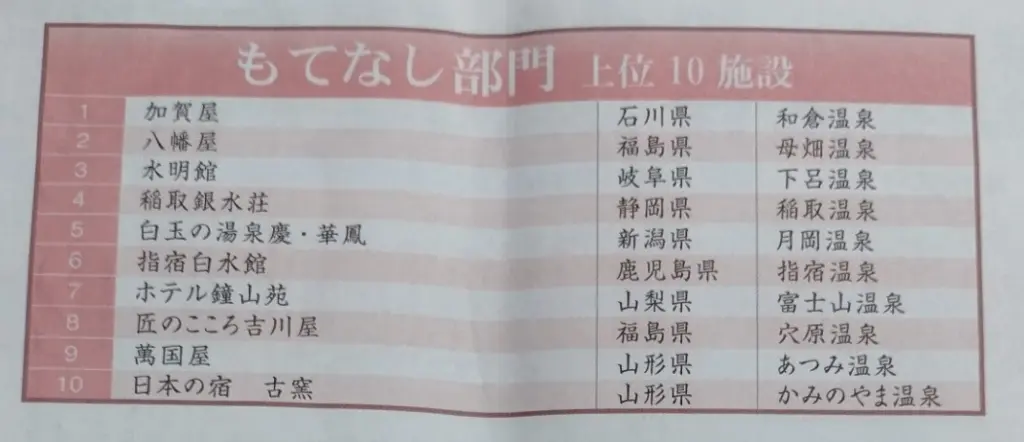 もてなし部門 上位 10 施設
1 加賀屋 石川県 和倉温泉
2 八幡屋 福島県 母畑温泉
3 水明館 岐阜県 下呂温泉
4 稲取銀水荘 静岡県 稲取温泉
5 白玉の湯泉慶・華鳳 新潟県 月岡温泉
6 指宿白水館 鹿児島県 指宿温泉
7 ホテル鐘山苑 山梨県 富士山温泉
8 匠のこころ吉川屋 福島県 穴原温泉
9 萬国屋 山形県 あつみ温泉
10 日本の宿 古窯 山形県 かみのやま温泉